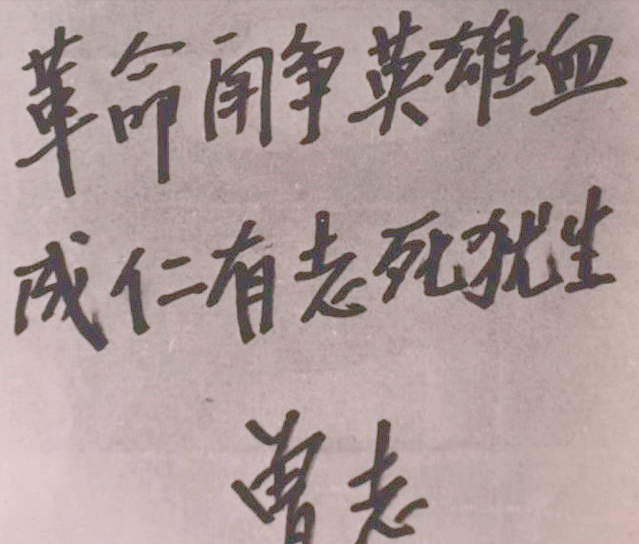 革命闹争英雄血
成仁有志死犹生
曾志